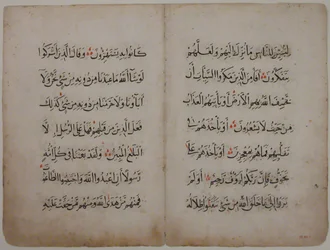 لتبين للناس ما نزل اليهم ولعلهم
يتفكرون افامن الذين مكروا السيات ان
يخسف الله بهم الارض او ياتيهم العذاب
من حيث لا يشعرون او ياخذهم في
تقلبهم فما هم بمعجزين او ياخذهم على
تخوف فان ربكم لروف رحيم او لم
يروا الى ما خلق الله من شي يتفيوا ظلاله
كانوا به يستهزون وقال الذين اشركوا
لو شا الله ما عبدنا من دونه من شي نحن ولا
اباونا ولا حرمنا من دونه من شي كذلك
فعل الذين من قبلهم فهل على الرسل الا
البلغ المبين ولقد بعثنا في كل امة
رسولا ان اعبدوا الله واجتنبوا الطاغوت
فمنهم من هدى الله ومنهم من حقت عليه